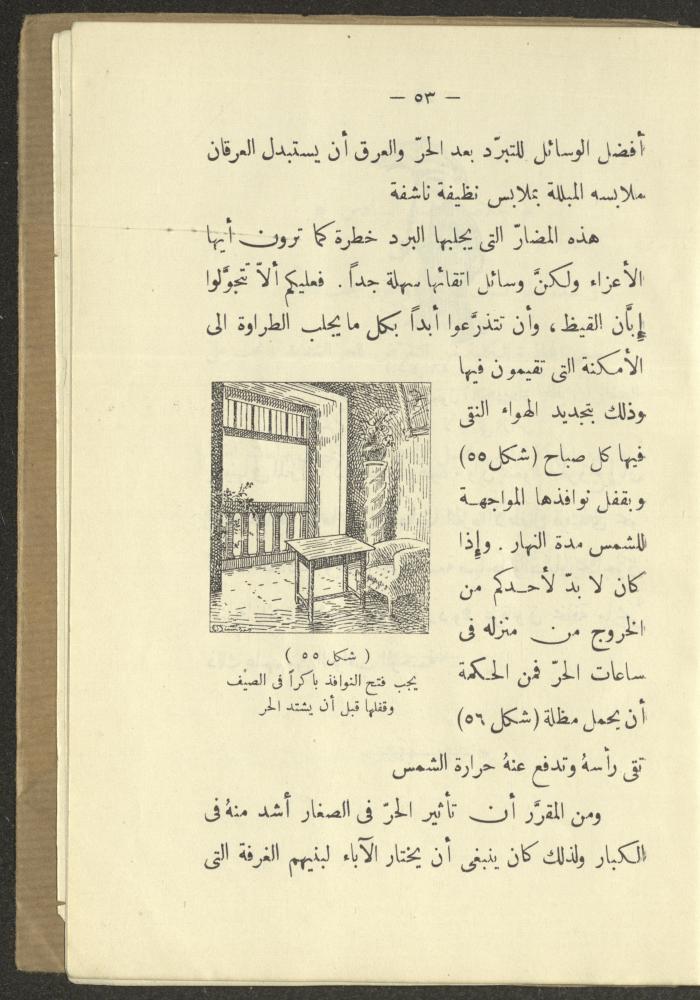 — ٥٣ —
أفضل الوسائل للتبرّد بعد الحرّ والعرق أن يستبدل العرقان
ملابسه المبللة بملابس نظيفة ناشفة
هذه المضارّ التى يجلبها البرد خطرة كما ترون أيها
الأعزاء ولكنَّ وسائل اتقائها سهلة جداً . فعليكم ألاّ تتجوَّلوا
إبَّان القيظ ، وأن تتذرَّعوا أبداً بكل ما يجلب الطراوة الى
الأمكنة التى تقيمون فيها
وذلك بتجديد الهواء النقى
فيها كل صباح (شكل ٥٥)
و بقفل نوافذها المواجهة
للشمس مدة النهار . وإذا
كان لا بدّ لأحدكم من
الخروج من منزله فى
ساعات الحرّ فمن الحكمة
أن يحمل مظلة (شكل ٥٦)
تقى رأسهُ وتدفع عنهُ حرارة الشمس
( شكل ٥٥ )
يجب فتح النوافذ باكراً فى الصيف
وقفلها قبل أن يشتد الحر
ومن المقرَّر أن تأثير الحرّ فى الصغار أشد منهُ فى
الكبار ولذلك كان ينبغى أن يختار الآباء لبنيهم الغرفة التى